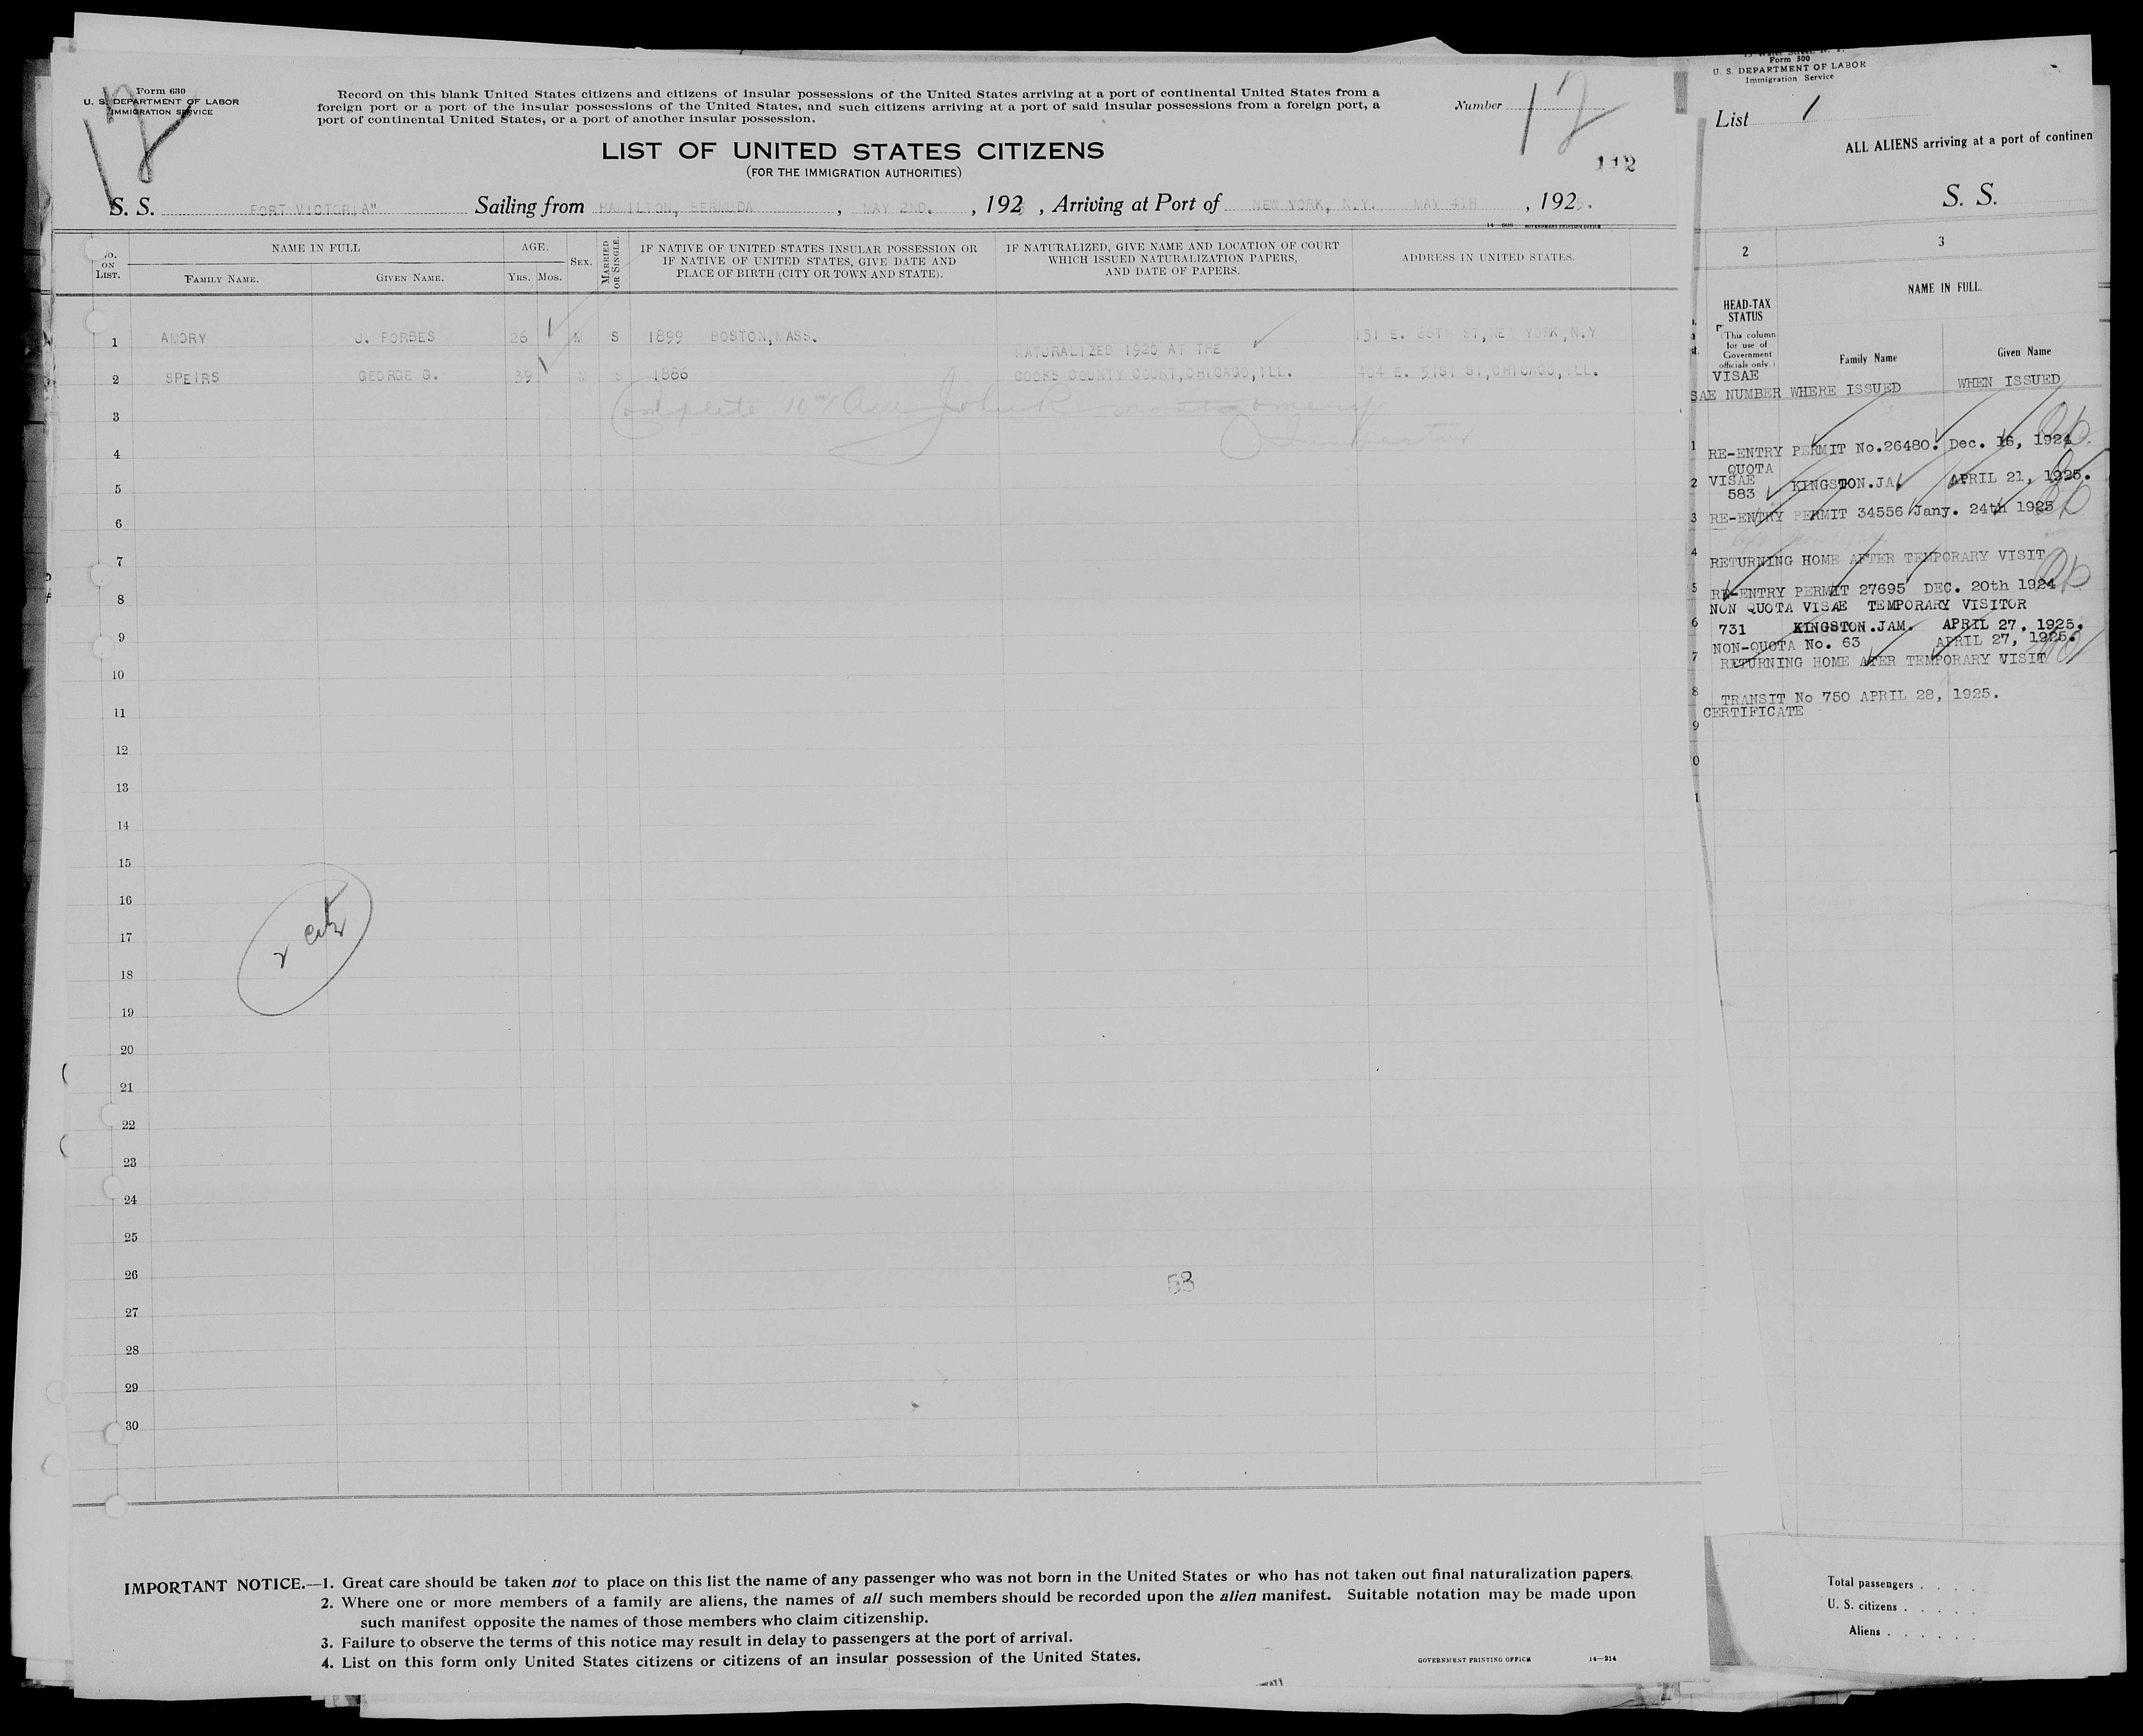 Form 630
U. S. DEPARTMENT OF LABOR
IMMIGRATION SERVICE
12
Record on this blank United States citizens and citizens of insular possessions of the United States arriving at a port of continental United States from a
foreign port or a port of the insular possessions of the United States, and such citizens arriving at a port of said insular possessions from a foreign port, a
port of continental United States, or a port of another insular possession.
Number 12
112
LIST OF UNITED STATES CITIZENS
(FOR THE IMMIGRATION AUTHORITIES)
S. S. FORT VICTORIA" Sailing from HAMILTON, BERMUDA, MAY 2ND., 1925, Arriving at Port of NEW YORK, N.Y. MAY 4TH, 1925.
No. ON LIST.
NAME IN FULL
FAMILY NAME.
GIVEN NAME.
AGE.
YRS. MOS.
SEX.
MARRIED OR SINGLE.
IF NATIVE OF UNITED STATES INSULAR POSSESSION OR
IF NATIVE OF UNITED STATES, GIVE DATE AND
PLACE OF BIRTH (CITY OR TOWN AND STATE).
IF NATURALIZED, GIVE NAME AND LOCATION OF COURT
WHICH ISSUED NATURALIZATION PAPERS,
AND DATE OF PAPERS.
ADDRESS IN UNITED STATES.
1 AMORY J. FORBES 26 M S 1899 BOSTON, MASS. 131 E. 66TH ST, NEW YORK, N.Y
NATURALIZED 1920 AT THE
2 SPEIRS GEORGE G. 39 M S 1886 COOKS COUNTY COURT, CHICAGO, ILL. 404 E. 51ST ST, CHICAGO, ILL.
Complete John R Montgomery
3
Inspector
4
5
6
7
8
9
10
11
12
13
14
15
16
17
18
19
20
21
22
23
24
25
26
27
28
29
30
2 citz
53
IMPORTANT NOTICE.—1. Great care should be taken not to place on this list the name of any passenger who was not born in the United States or who has not taken out final naturalization papers.
2. Where one or more members of a family are aliens, the names of all such members should be recorded upon the alien manifest. Suitable notation may be made upon
such manifest opposite the names of those members who claim citizenship.
3. Failure to observe the terms of this notice may result in delay to passengers at the port of arrival.
4. List on this form only United States citizens or citizens of an insular possession of the United States.
GOVERNMENT PRINTING OFFICE 14—214
Form 500
U. S. DEPARTMENT OF LABOR
Immigration Service
List 1
ALL ALIENS arriving at a port of continen
S. S.
2
3
HEAD-TAX
STATUS
(This column
for use of
Government
officials only.)
NAME IN FULL.
Family Name
Given Name
VISAE
SAE NUMBER WHERE ISSUED WHEN ISSUED
1 RE-ENTRY PERMIT No.26480. Dec. 16, 1924.
QUOTA
2 VISAE KINGSTON.JA. APRIL 21, 1925.
583
3 RE-ENTRY PERMIT 34556 Jany. 24th 1925
4 RETURNING HOME AFTER TEMPORARY VISIT
5 RE-ENTRY PERMIT 27695 DEC. 20th 1924
NON QUOTA VISAE TEMPORARY VISITOR
6 731 KINGSTON.JAM. APRIL 27, 1925.
NON-QUOTA No. 63 APRIL 27, 1925.
7 RETURNING HOME AFER TEMPORARY VISIT
8 TRANSIT No 750 APRIL 28, 1925.
CERTIFICATE
9
0
1
Total passengers . . . .
U. S. citizens . . . . .
Aliens . . . . . .